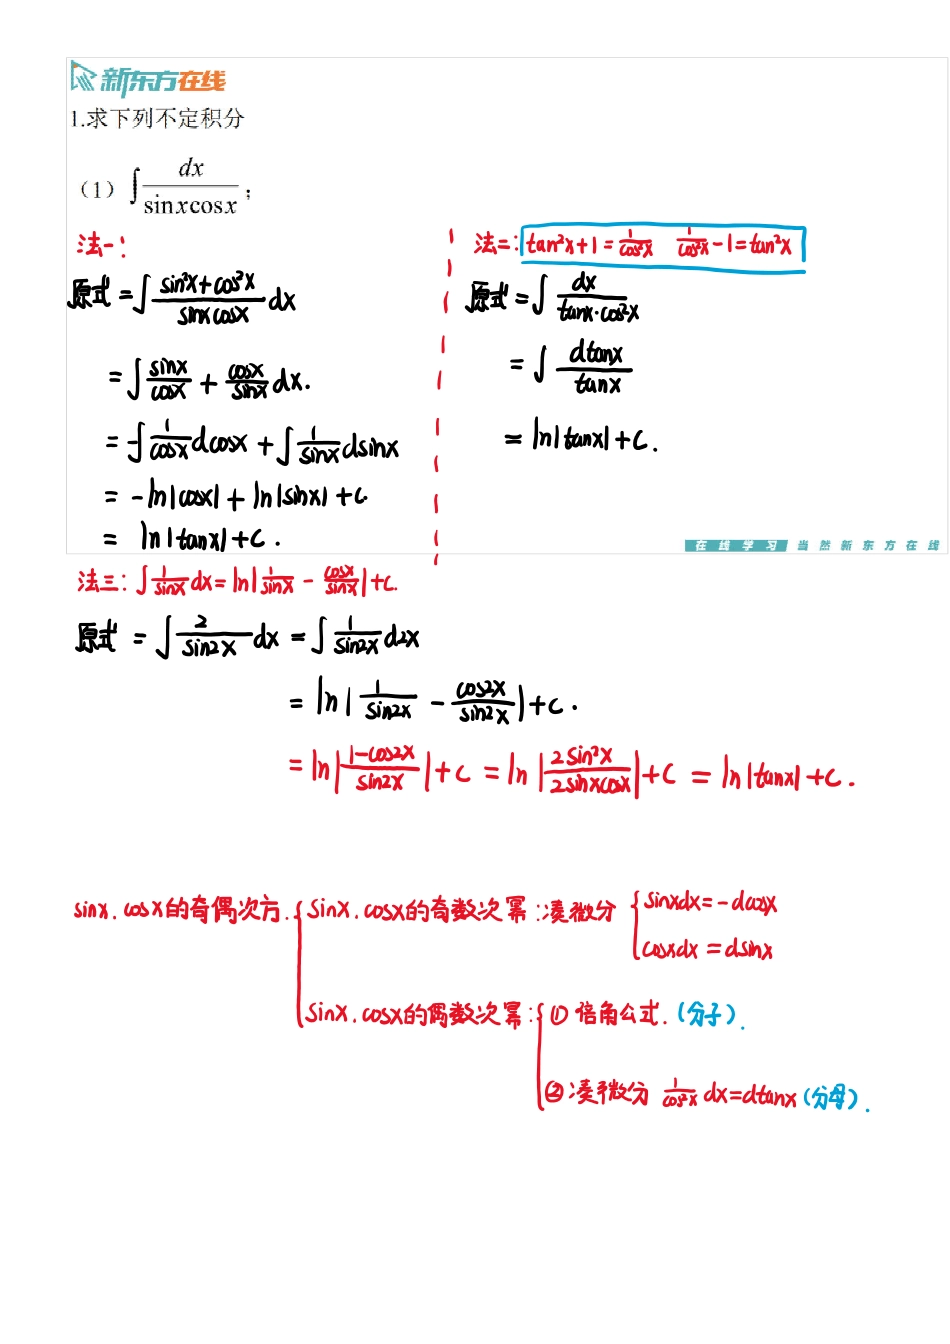 新东方在线
1.求下列不定积分
（1）∫ dx/(sinxcosx) ；
法一：
原式 = ∫ (sin²x+cos²x)/(sinxcosx) dx
= ∫ sinx/cosx + cosx/sinx dx.
= -∫ 1/cosx dcosx + ∫ 1/sinx dsinx
= -ln|cosx| + ln|sinx| + C
= ln|tanx| + C .
法二：tan²x+1 = 1/cos²x  1/cos²x - 1 = tan²x
原式 = ∫ dx/(tanx·cos²x)
= ∫ dtanx/tanx
= ln|tanx| + C .
在线学习 当然新东方在线
法三：∫ 1/sinx dx = ln|1/sinx - cosx/sinx| + C.
原式 = ∫ 2/sin2x dx = ∫ 1/sin2x d2x
= ln|1/sin2x - cos2x/sin2x| + C .
= ln|(1-cos2x)/sin2x| + C = ln|2sin²x/(2sinxcosx)| + C = ln|tanx| + C .
sinx. cosx的奇偶次方.
sinx. cosx的奇数次幂：凑微分
sinxdx = -dcosx
cosxdx = dsinx
sinx. cosx的偶数次幂：
① 倍角公式.（分子）.
② 凑微分 1/cos²x dx=dtanx（分母）.